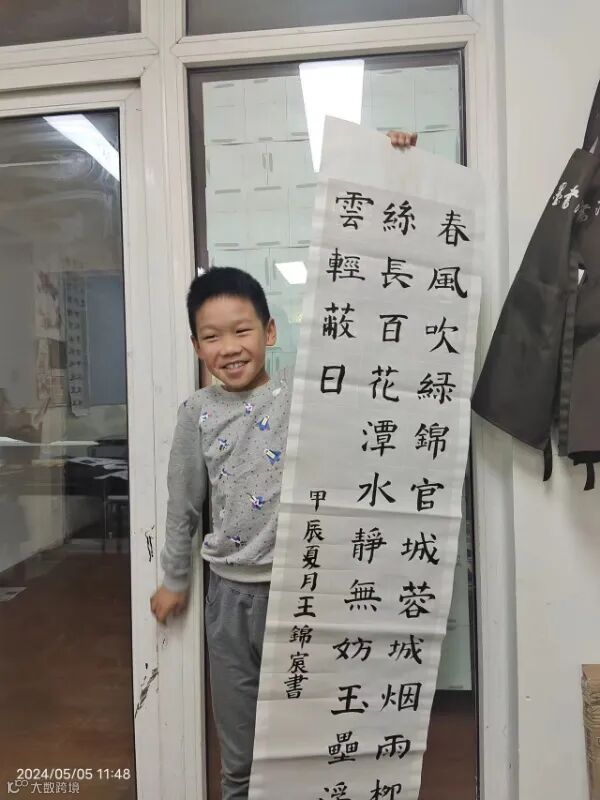 春風吹緑錦官城蓉城烟雨柳
絲長百花潭水靜無妨玉壘浮
雲輕蔽日
甲辰夏月王錦宸書
2024/05/05 11:48
大数跨境